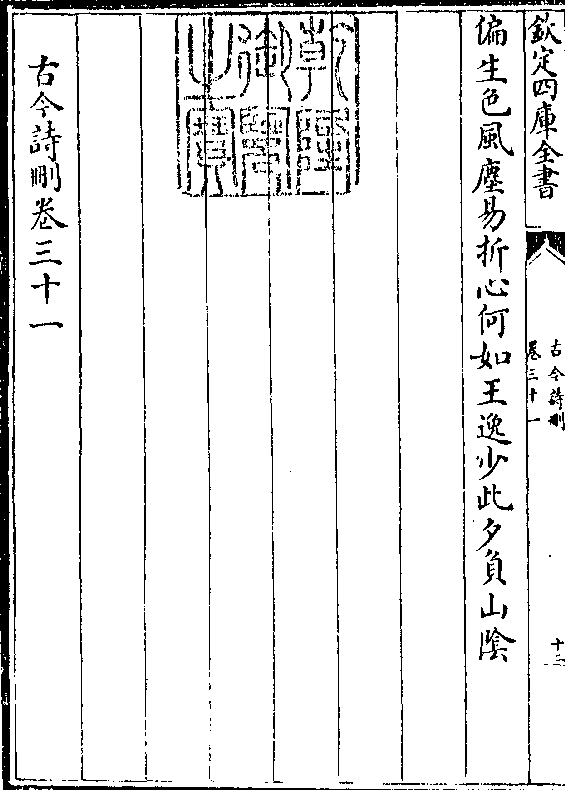 欽定四庫全書
古今詩刪
卷三十一
十三
偏生色風塵易折心何如王逸少此夕負山陰
乾隆
御覽
之寶
古今詩刪卷三十一